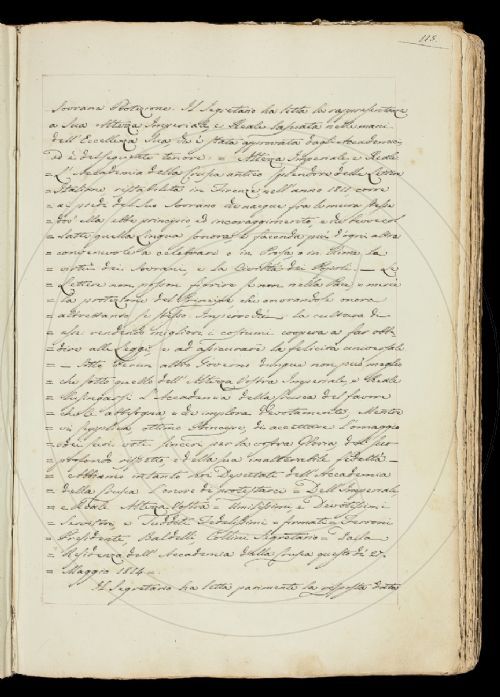 115.
Sovrana Protezione. Il Segretario ha letta la rappresentanza
a Sua Altezza Imperiale, e Reale lasciata nelle mani
dell'Eccellenza Sua, che è stata approvata dagli Accademici
ed è del seguente tenore = Altezza Imperiale, e Reale
= L'Accademia della Crusca antico splendore delle Lettere
= Italiane ristabilita in Firenze nell'anno 1811 corre
= ai piedi del suo Sovrano da nacque fra le mura stesse
= ella ebbe principio, ed incoraggimento, e dove
= quella Lingua sonora, e faconda più d'ogni altra
= a celebrare o in Prosa o in Rima la
= virtù dei Sovrani, e la dei Popoli. — Le
= Lettere non posson fiorire se non nella Pace, e mercè
= la protezione del Principe che onorandole onora
= se stesso la cultura di
= esse rendendo migliori i costumi coopera a far obbe
= dire alle Leggi, e ad assicurare la felicità universale
= — Sotto verun altro Governo dunque non può meglio
= che sotto quello dell'Altezza Vostra Imperiale, e Reale
= lusingarsi l'Accademia della Crusca del favore
= che implora devotamente, Mentre
= vi supplica ottimo Principe, di accettare l'omaggio
= dei suoi voti sinceri per la vostra Gloria, del suo
= profondo rispetto, e della sua inalterabile fedeltà —
= Abbiamo intanto noi Deputati dell'Accademia
= della Crusca l'onore di protestarci = Dell'Imperiale
= e Reale Altezza Vostra = Umilissimi, e Devotissimi
= Servitori, e Sudditi Fedelissimi = firmati = Ferroni
= Presidente Baldelli Collini Segretario = Dalla
= Residenza dell'Accademia della Crusca questo dì 27.
= Maggio 1814 =
Il Segretario ha letta parimente la risposta data